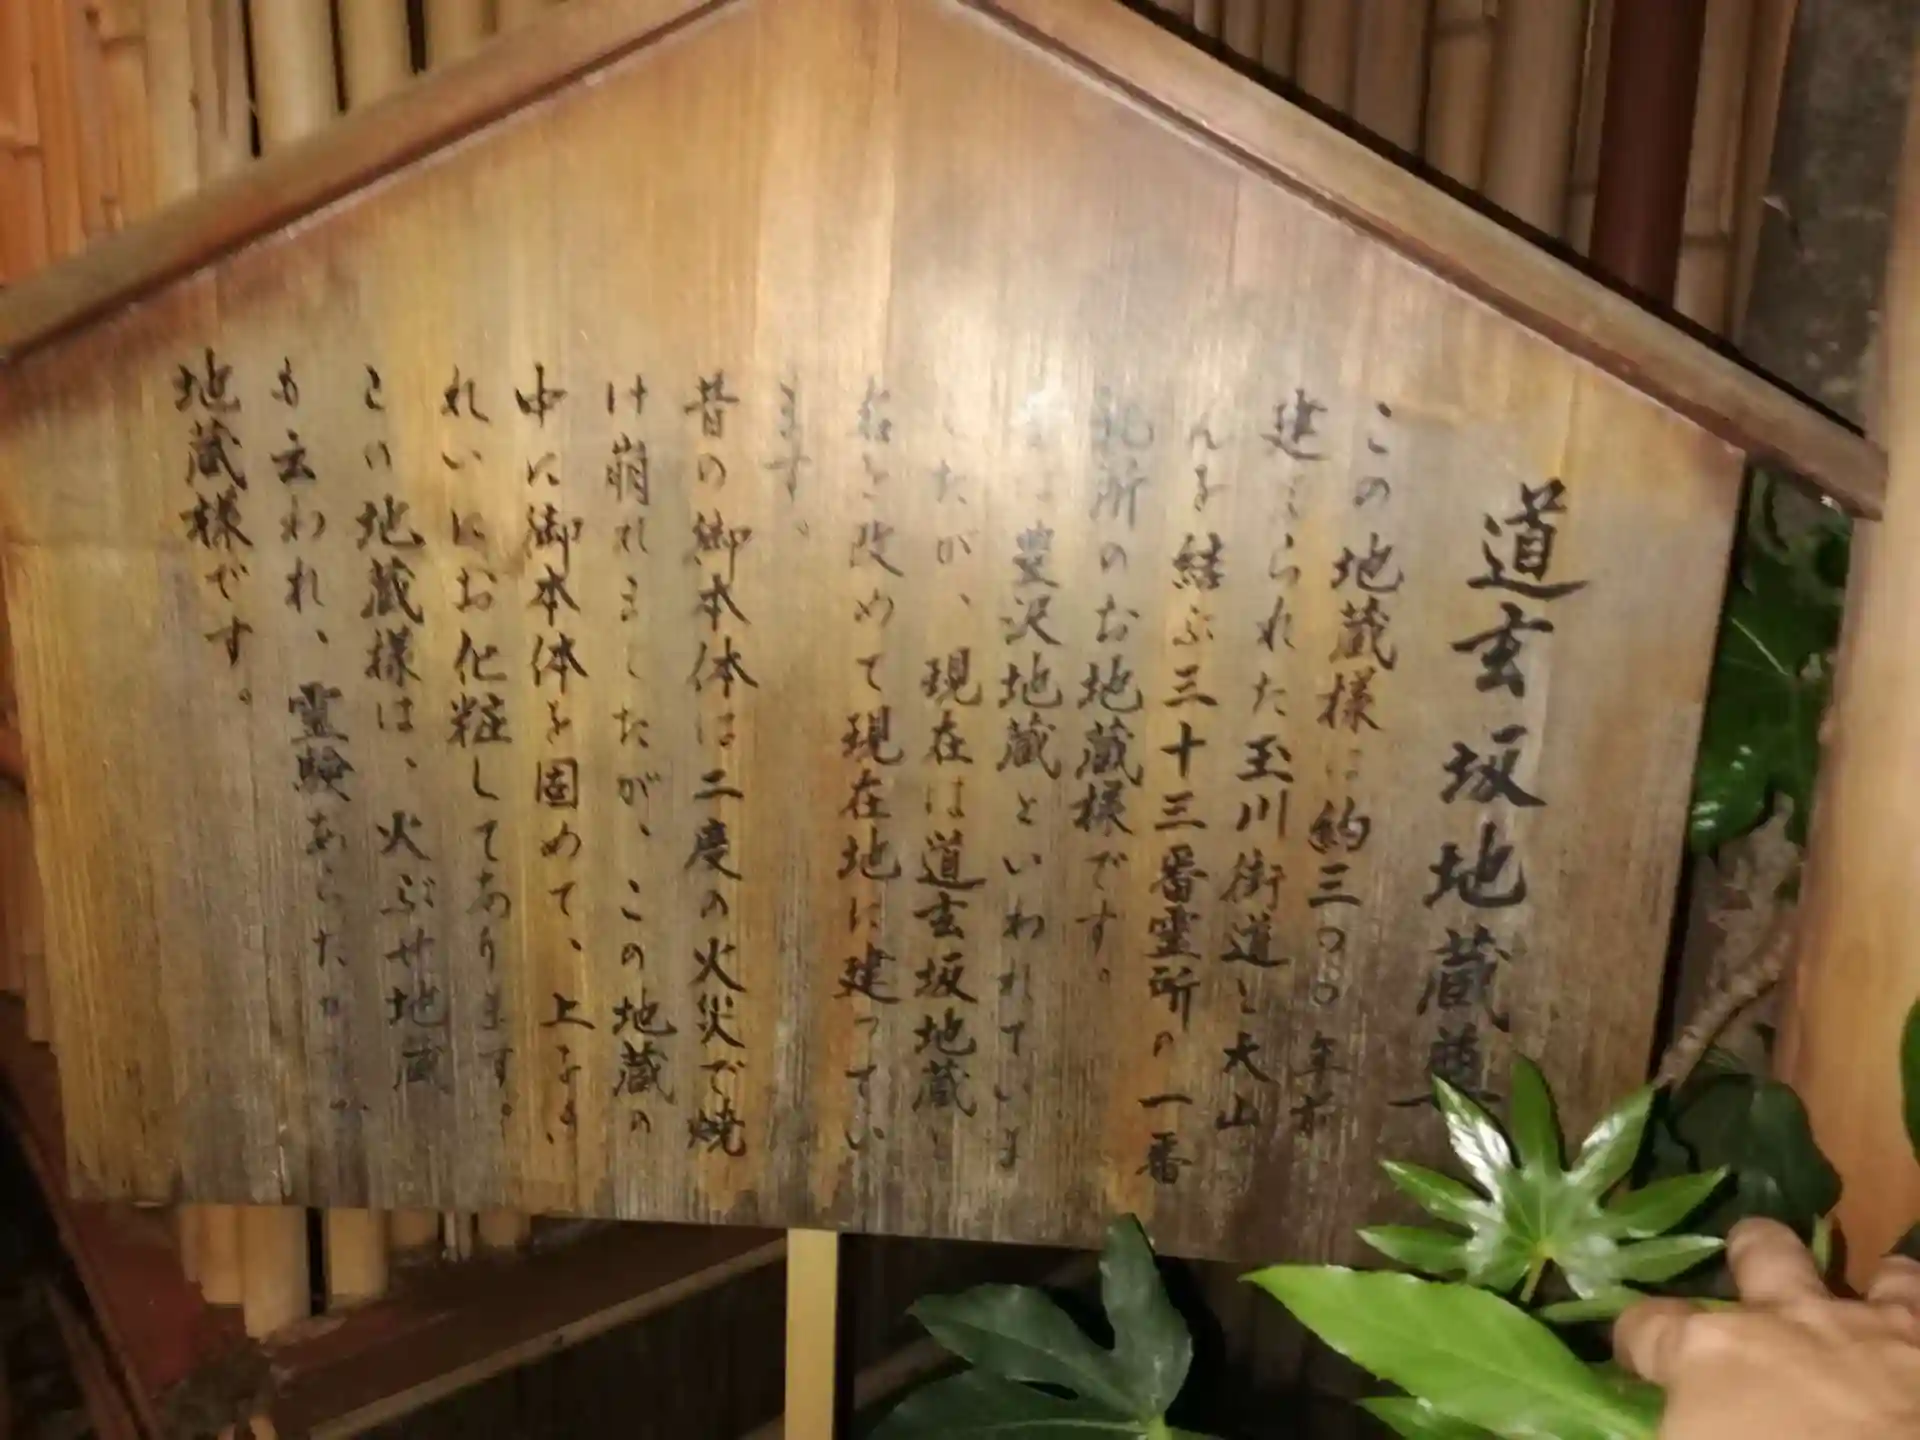 道玄坂地蔵尊
この地蔵様は約三〇〇年前
建てられた玉川街道と大山
んを結ぶ三十三番霊所の一番
札所のお地蔵様です。
豊沢地蔵といわれていま
したが、現在は道玄坂地蔵と
名を改めて現在地に建ってい
ます。
昔の御本体は二度の火災で焼
け崩れましたが、この地蔵の
中に御本体を固めて、上をき
れいにお化粧してあります。
この地蔵様は、火ぶせ地蔵
も云われ、霊験あらたかな
地蔵様です。